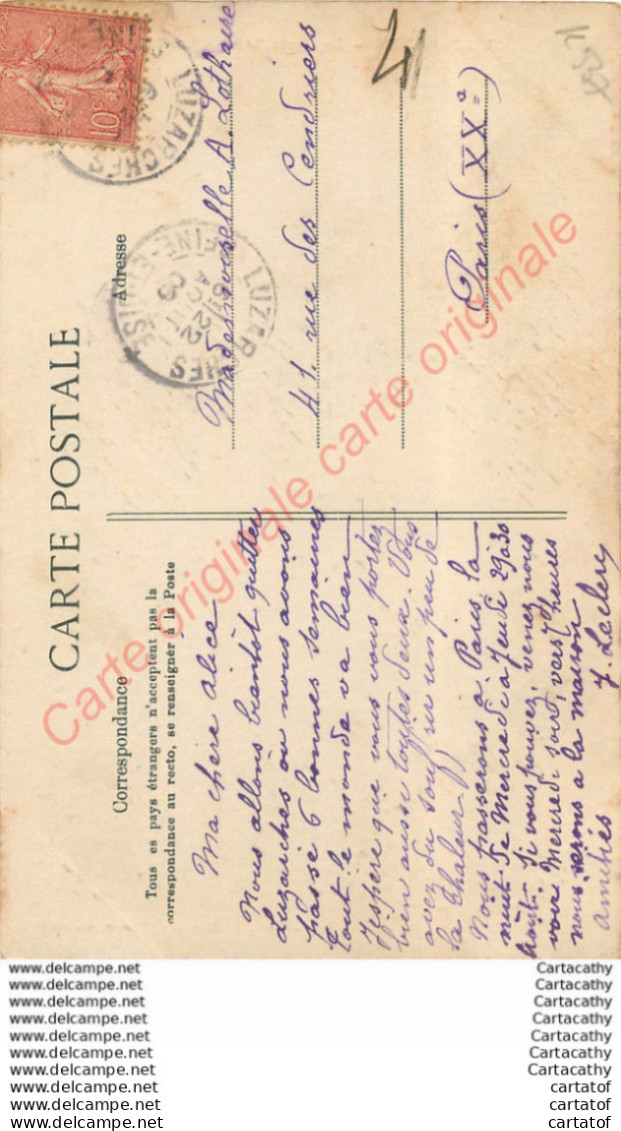 CARTE POSTALE
Correspondance
Tous es pays étrangers n'acceptent pas la
correspondance au recto, se renseigner à la Poste
Adresse
Ma chère Alice
Nous allons bientôt quitter
Luzarches où nous avons
passé 6 bonnes semaines
tout le monde va bien
J'espère que vous vous portez
bien aussi toutes deux. Vous
avez du souffrir un peu de
la chaleur
Nous passerons à Paris la
nuit de Mercredi à Jeudi 29 à 30
Août. Si vous pouvez, venez nous
voir Mercredi soir, vers heures
nous serons à la maison
amitiés
J. Leclerc
Mademoiselle A. Lothaire
41, rue des Cendriers
Paris (XXe)
41
10c
LUZARCHES
LUZARCHES
SEINE-ET-OISE
Carte originale carte originale
www.delcampe.net
www.delcampe.net
www.delcampe.net
www.delcampe.net
www.delcampe.net
www.delcampe.net
www.delcampe.net
www.delcampe.net
www.delcampe.net
www.delcampe.net
Cartacathy
Cartacathy
Cartacathy
Cartacathy
Cartacathy
Cartacathy
Cartacathy
cartatof
cartatof
cartatof